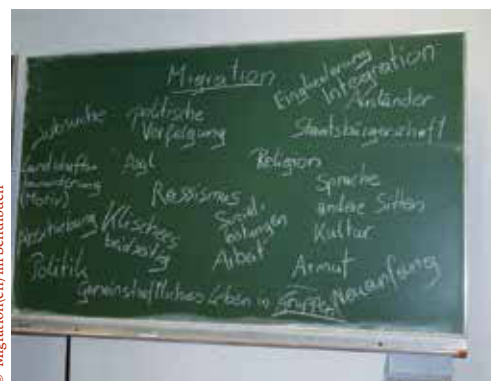 Migration
Eingliederung
Integration
Ausländer
Staatsbürgerschaft
Jobsuche
politische
Verfolgung
Asyl
Religion
(Motiv)
Rassismus
Sprache
andere Sitten
Kultur
Abschiebung
Klischees
beidseitig
Sozial-
leistungen
Arbeit
Armut
Politik
Neuanfang
gemeinschaftliches Leben in Gruppe
© Migration(en) im Schulbuch